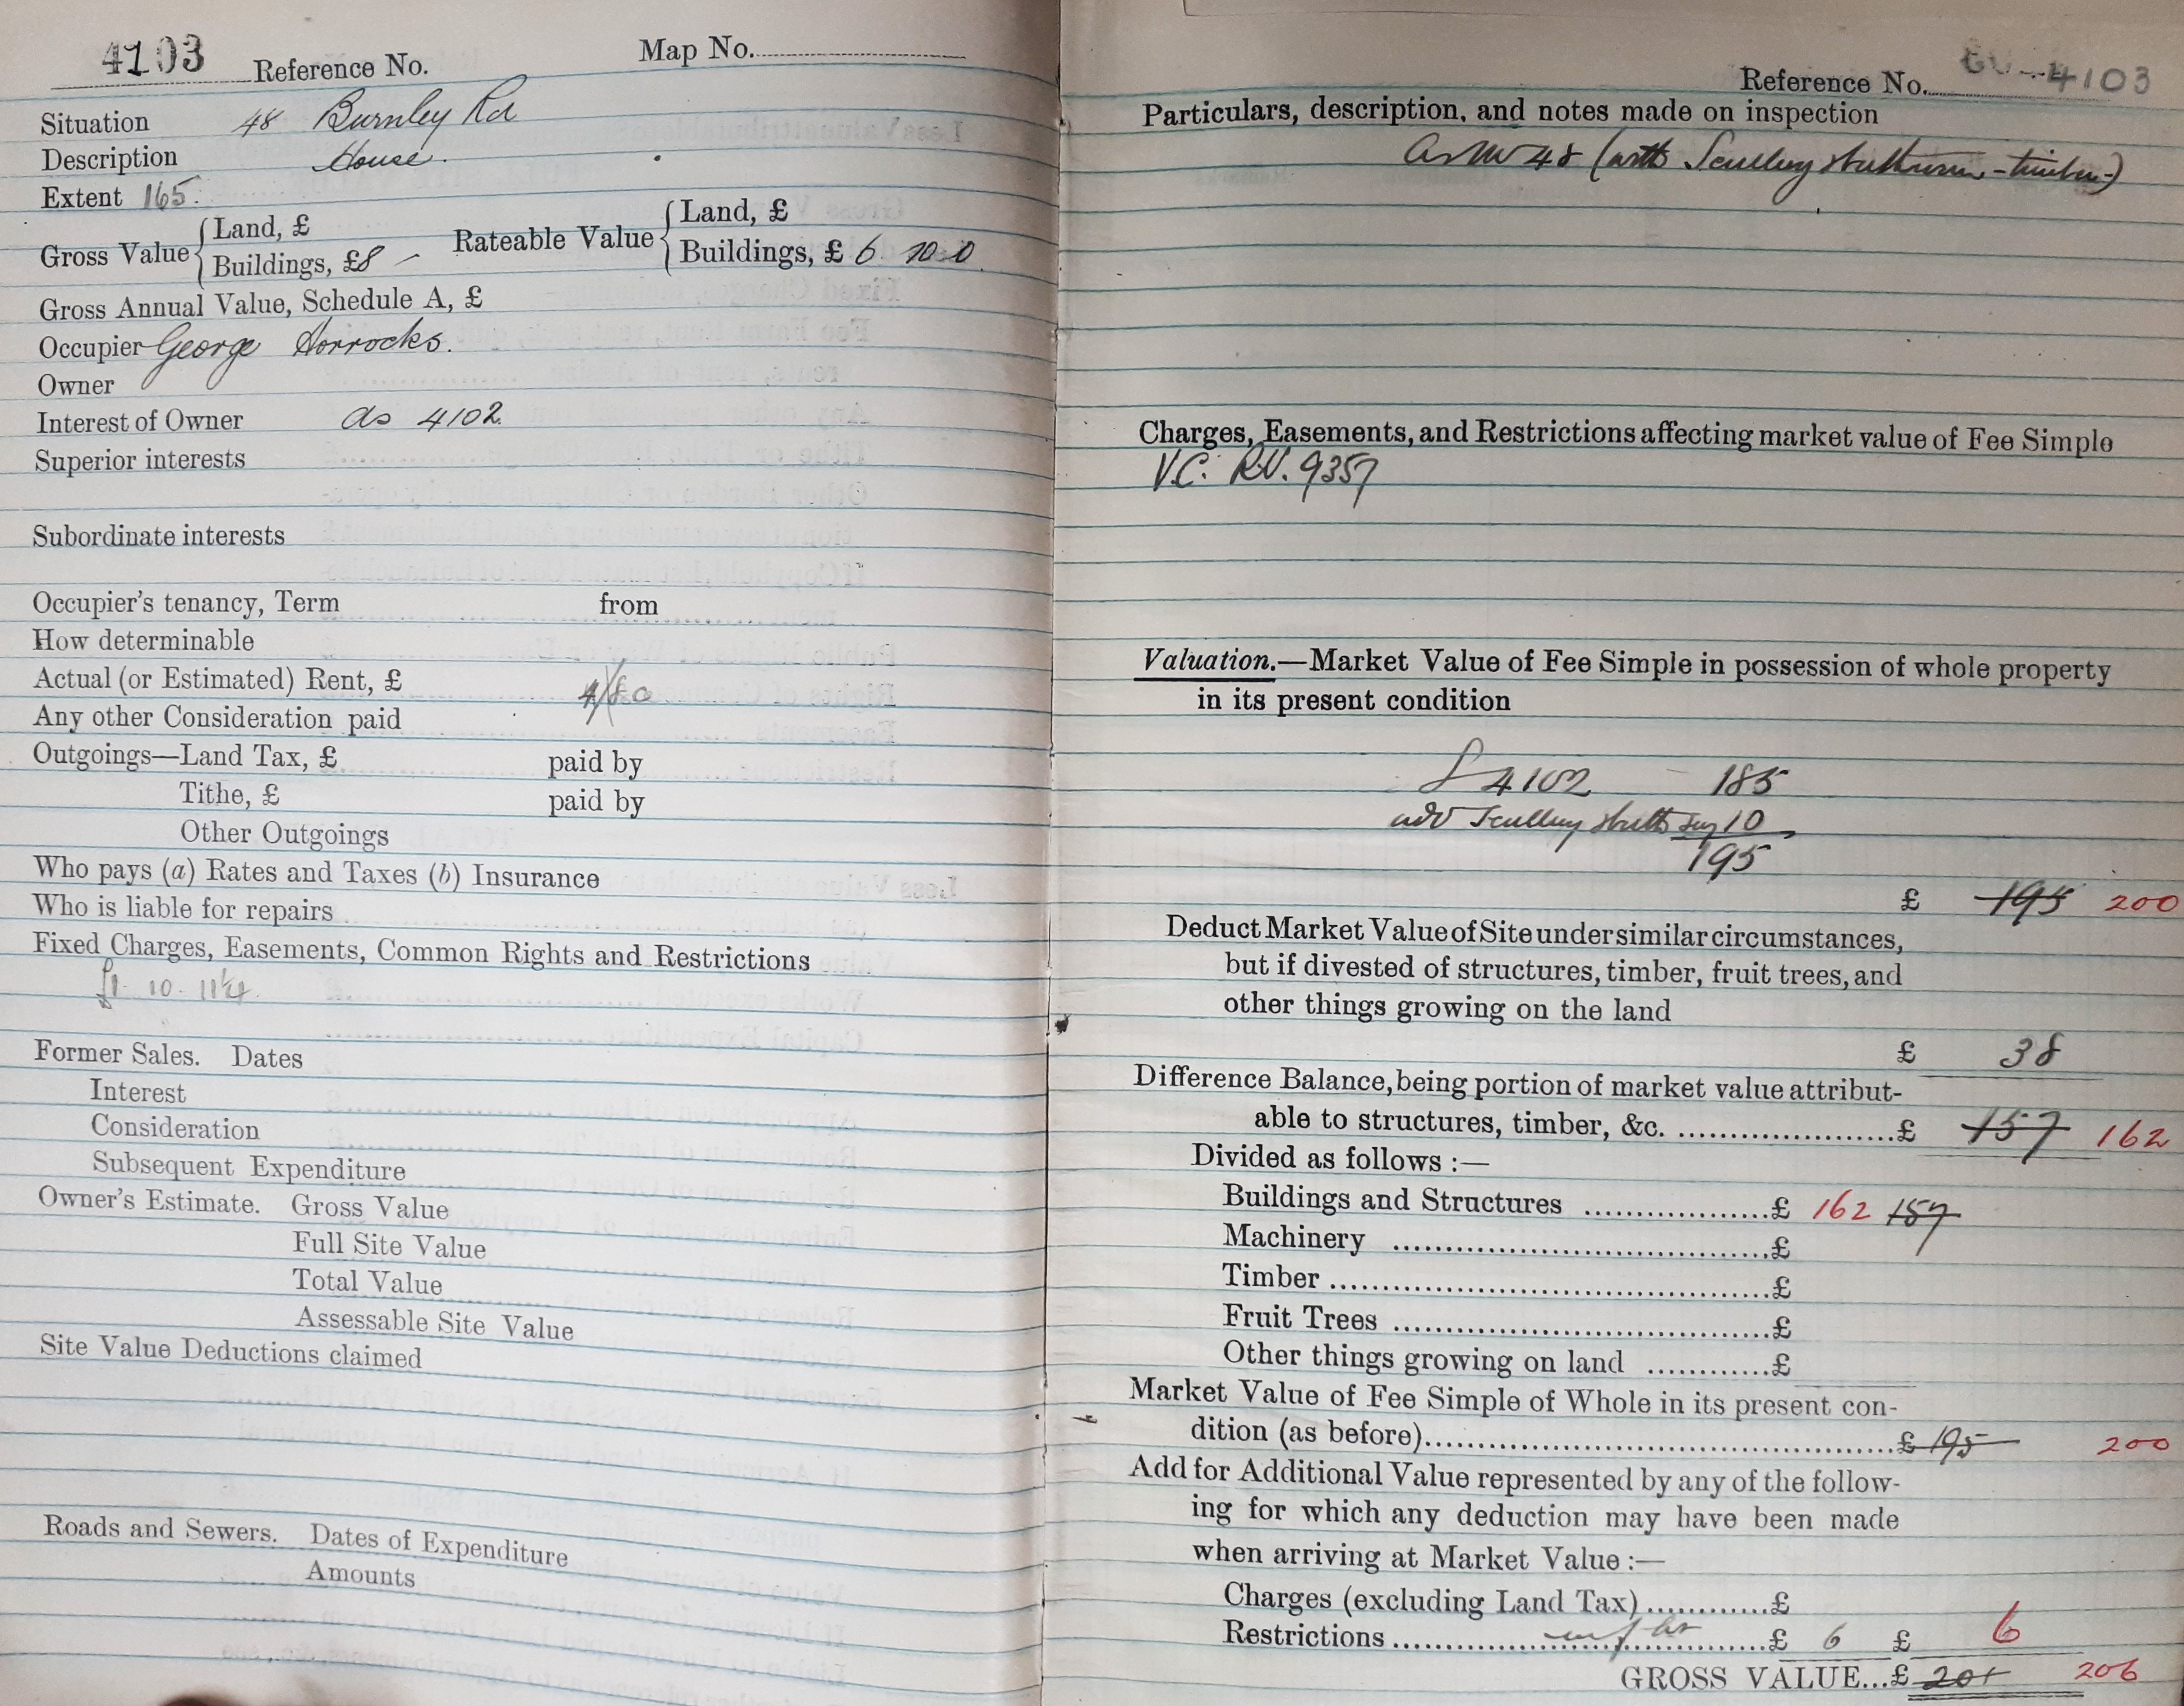 4103 Reference No. Map No.
Situation 48 Burnley Rd
Description House.
Extent 165.
Gross Value { Land, £
Buildings, £8 – Rateable Value { Land, £
Buildings, £ 6 10 0
Gross Annual Value, Schedule A, £
Occupier George Horrocks.
Owner
Interest of Owner as 4102
Superior interests
Subordinate interests
Occupier's tenancy, Term from
How determinable
Actual (or Estimated) Rent, £
Any other Consideration paid
Outgoings—Land Tax, £ paid by
Tithe, £ paid by
Other Outgoings
Who pays (a) Rates and Taxes (b) Insurance
Who is liable for repairs
Fixed Charges, Easements, Common Rights and Restrictions
£1. 10. 11¼
Former Sales. Dates
Interest
Consideration
Subsequent Expenditure
Owner's Estimate. Gross Value
Full Site Value
Total Value
Assessable Site Value
Site Value Deductions claimed
Roads and Sewers. Dates of Expenditure
Amounts
Reference No. 4103
Particulars, description, and notes made on inspection
48 (with Scullery
Charges, Easements, and Restrictions affecting market value of Fee Simple
V.C. R.V. 9357
Valuation.—Market Value of Fee Simple in possession of whole property
in its present condition
4102 185
add Scullery say 10
195
£ 195 200
Deduct Market Value of Site under similar circumstances,
but if divested of structures, timber, fruit trees, and
other things growing on the land
£ 38
Difference Balance, being portion of market value attribut-
able to structures, timber, &c. ......................£ 157 162
Divided as follows :—
Buildings and Structures ..................£ 162 157
Machinery ....................................£
Timber ..........................................£
Fruit Trees ....................................£
Other things growing on land ............£
Market Value of Fee Simple of Whole in its present con-
dition (as before)..............................................£ 195 200
Add for Additional Value represented by any of the follow-
ing for which any deduction may have been made
when arriving at Market Value :—
Charges (excluding Land Tax)............£
Restrictions ....................................£ 6 £ 6
GROSS VALUE...£ 201 206